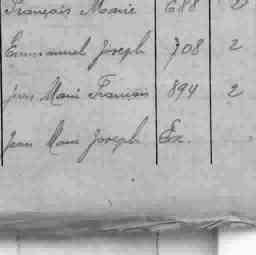 François Marie 688 2
Emmanuel Joseph 708 2
Jean Marie François 894 2
Jean Marie Joseph Ex.